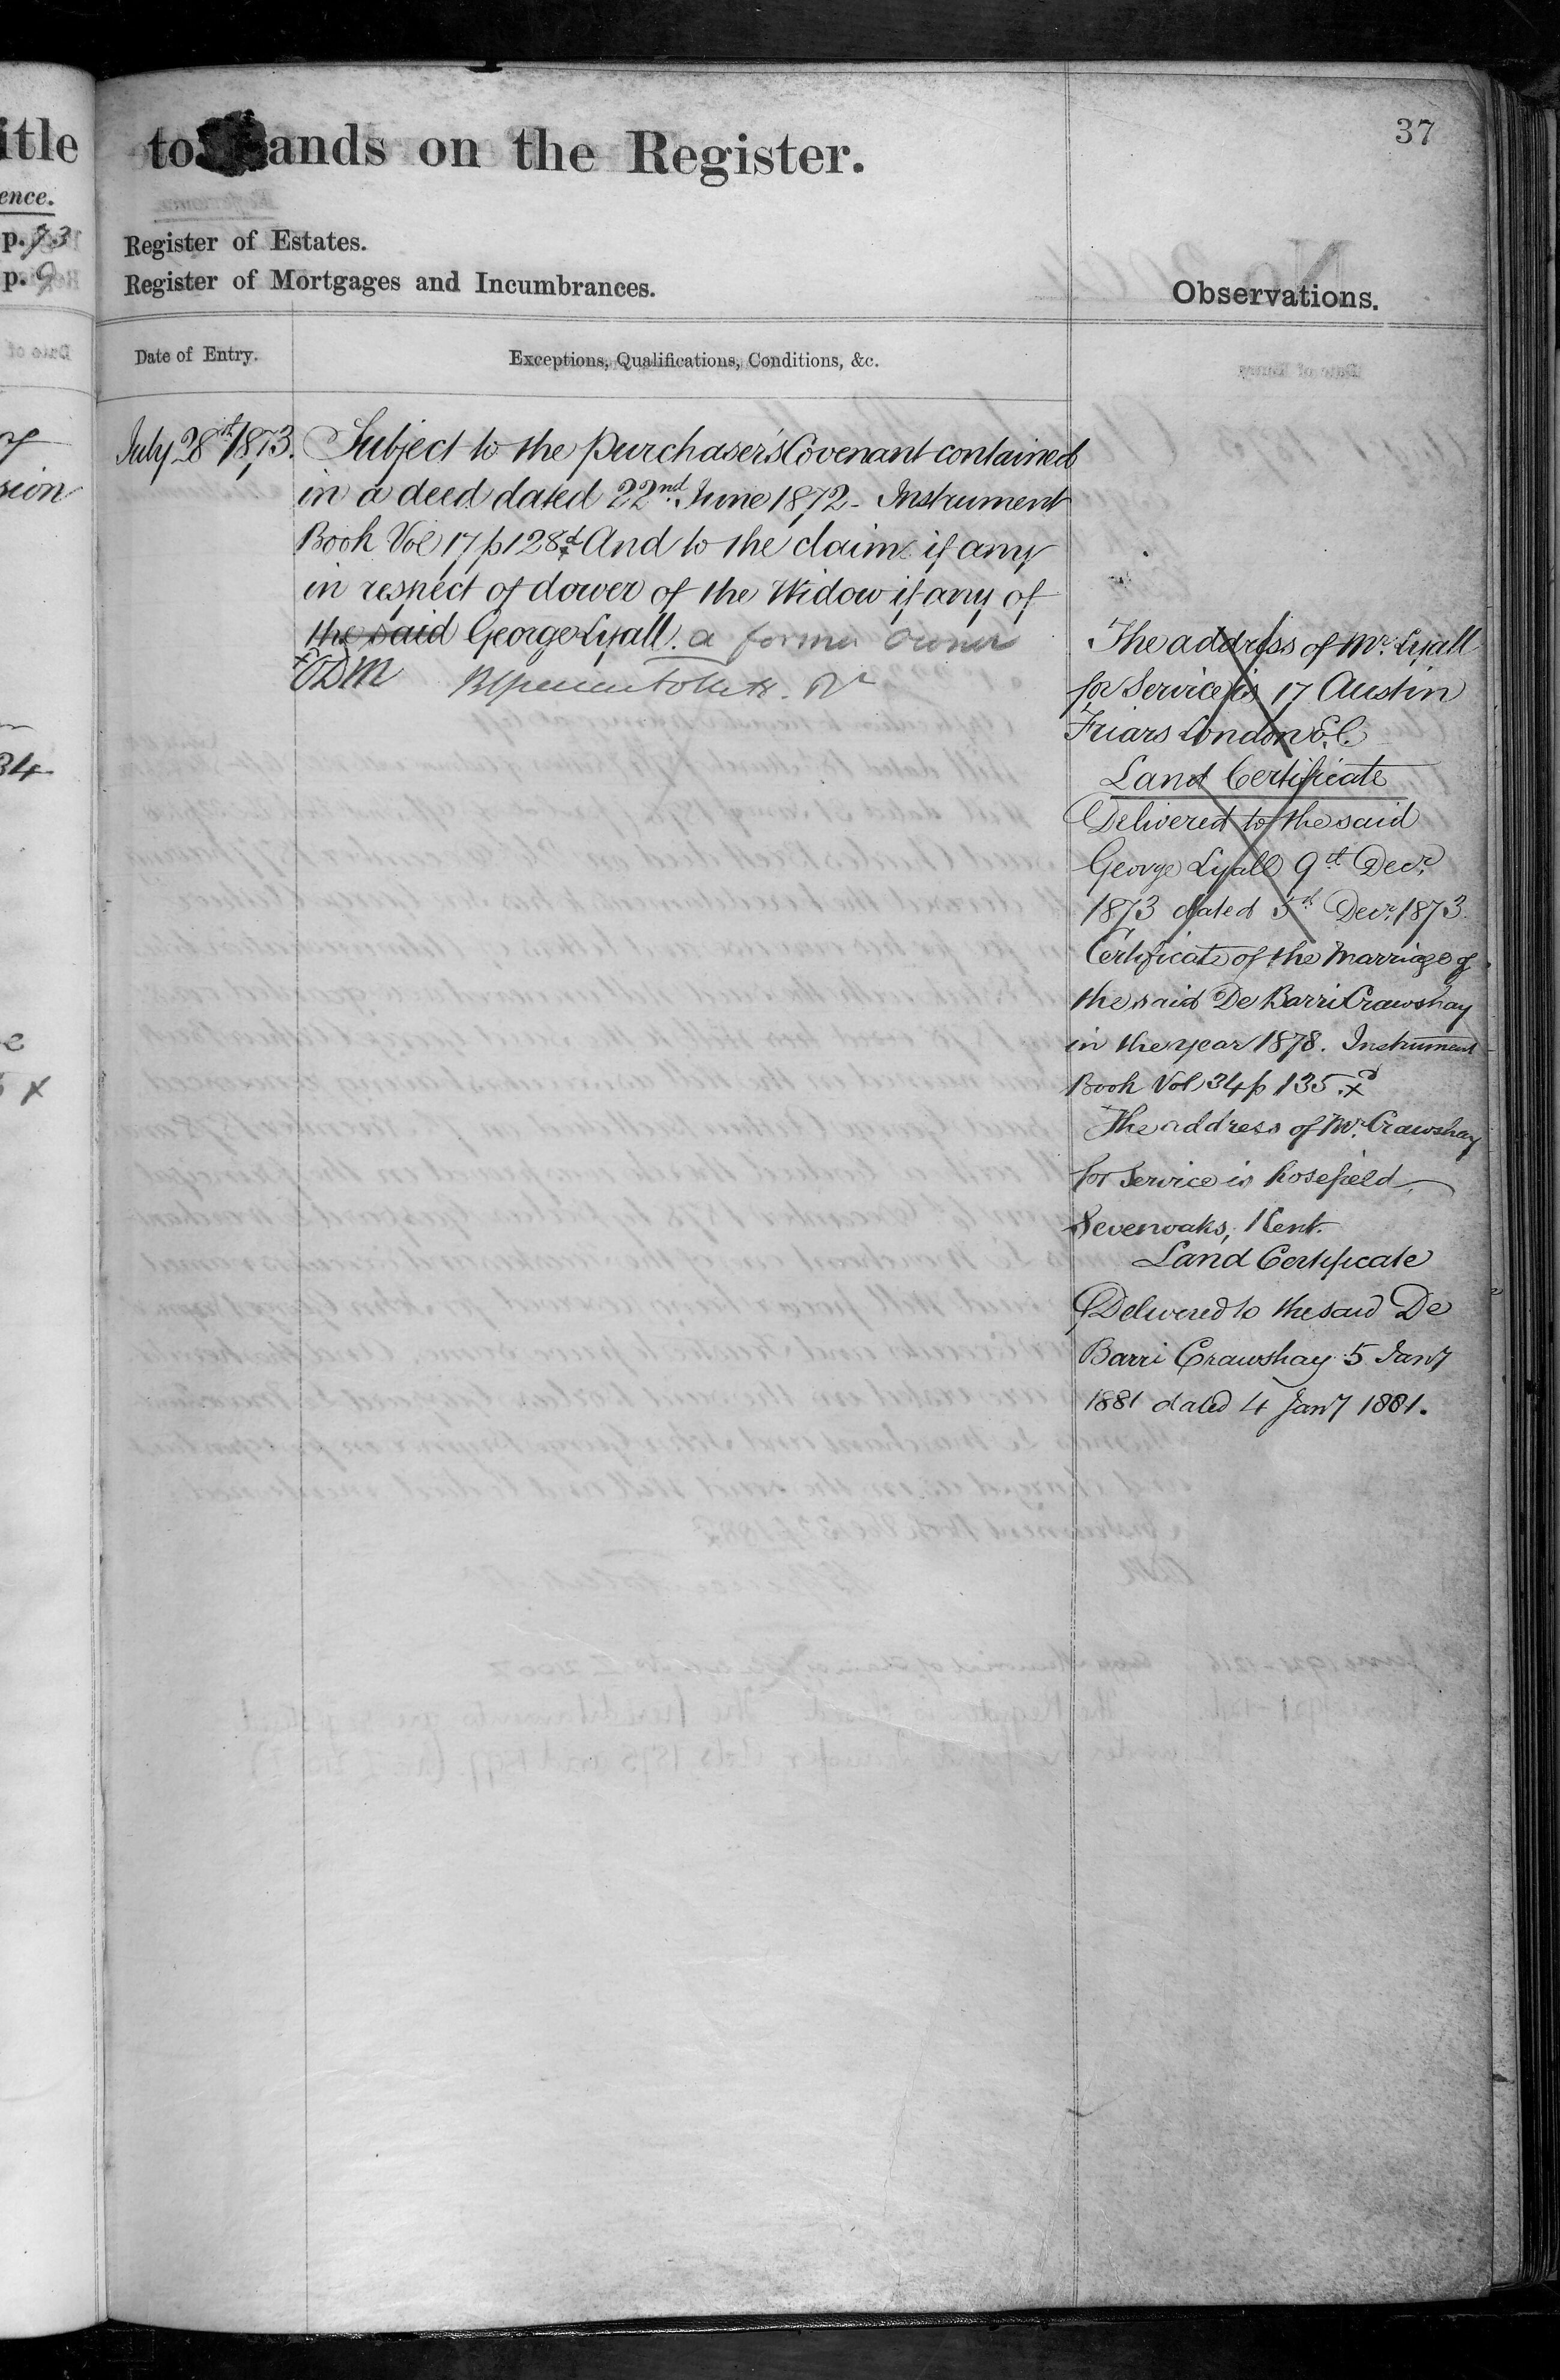 37
itle
to ands on the Register.
ence.
p. 73
Register of Estates.
p. 9
Register of Mortgages and Incumbrances.
Observations.
Date of Entry.
Exceptions, Qualifications, Conditions, &c.
July 28th 1873.
Subject to the purchaser's Covenant contained
in a deed dated 22nd June 1872 - Instrument
Book Vol 17 p 128 And to the claim if any
in respect of dower of the Widow if any of
the said George Lyall. a former owner
ODM
sion
34
x
The address of Mr. Lyall
for Service is 17 Austin
Friars London E.C.
Land Certificate
Delivered to the said
George Lyall 9th Decr.
1873 dated 5th Decr. 1873.
Certificate of the Marriage of
the said De Barri Crawshay
in the year 1878. Instrument
Book Vol 34 p 135.
The address of Mr. Crawshay
for Service is Rosefield
Sevenoaks, Kent.
Land Certificate
Delivered to the said De
Barri Crawshay 5 Jany
1881 dated 4 Jany 1881.